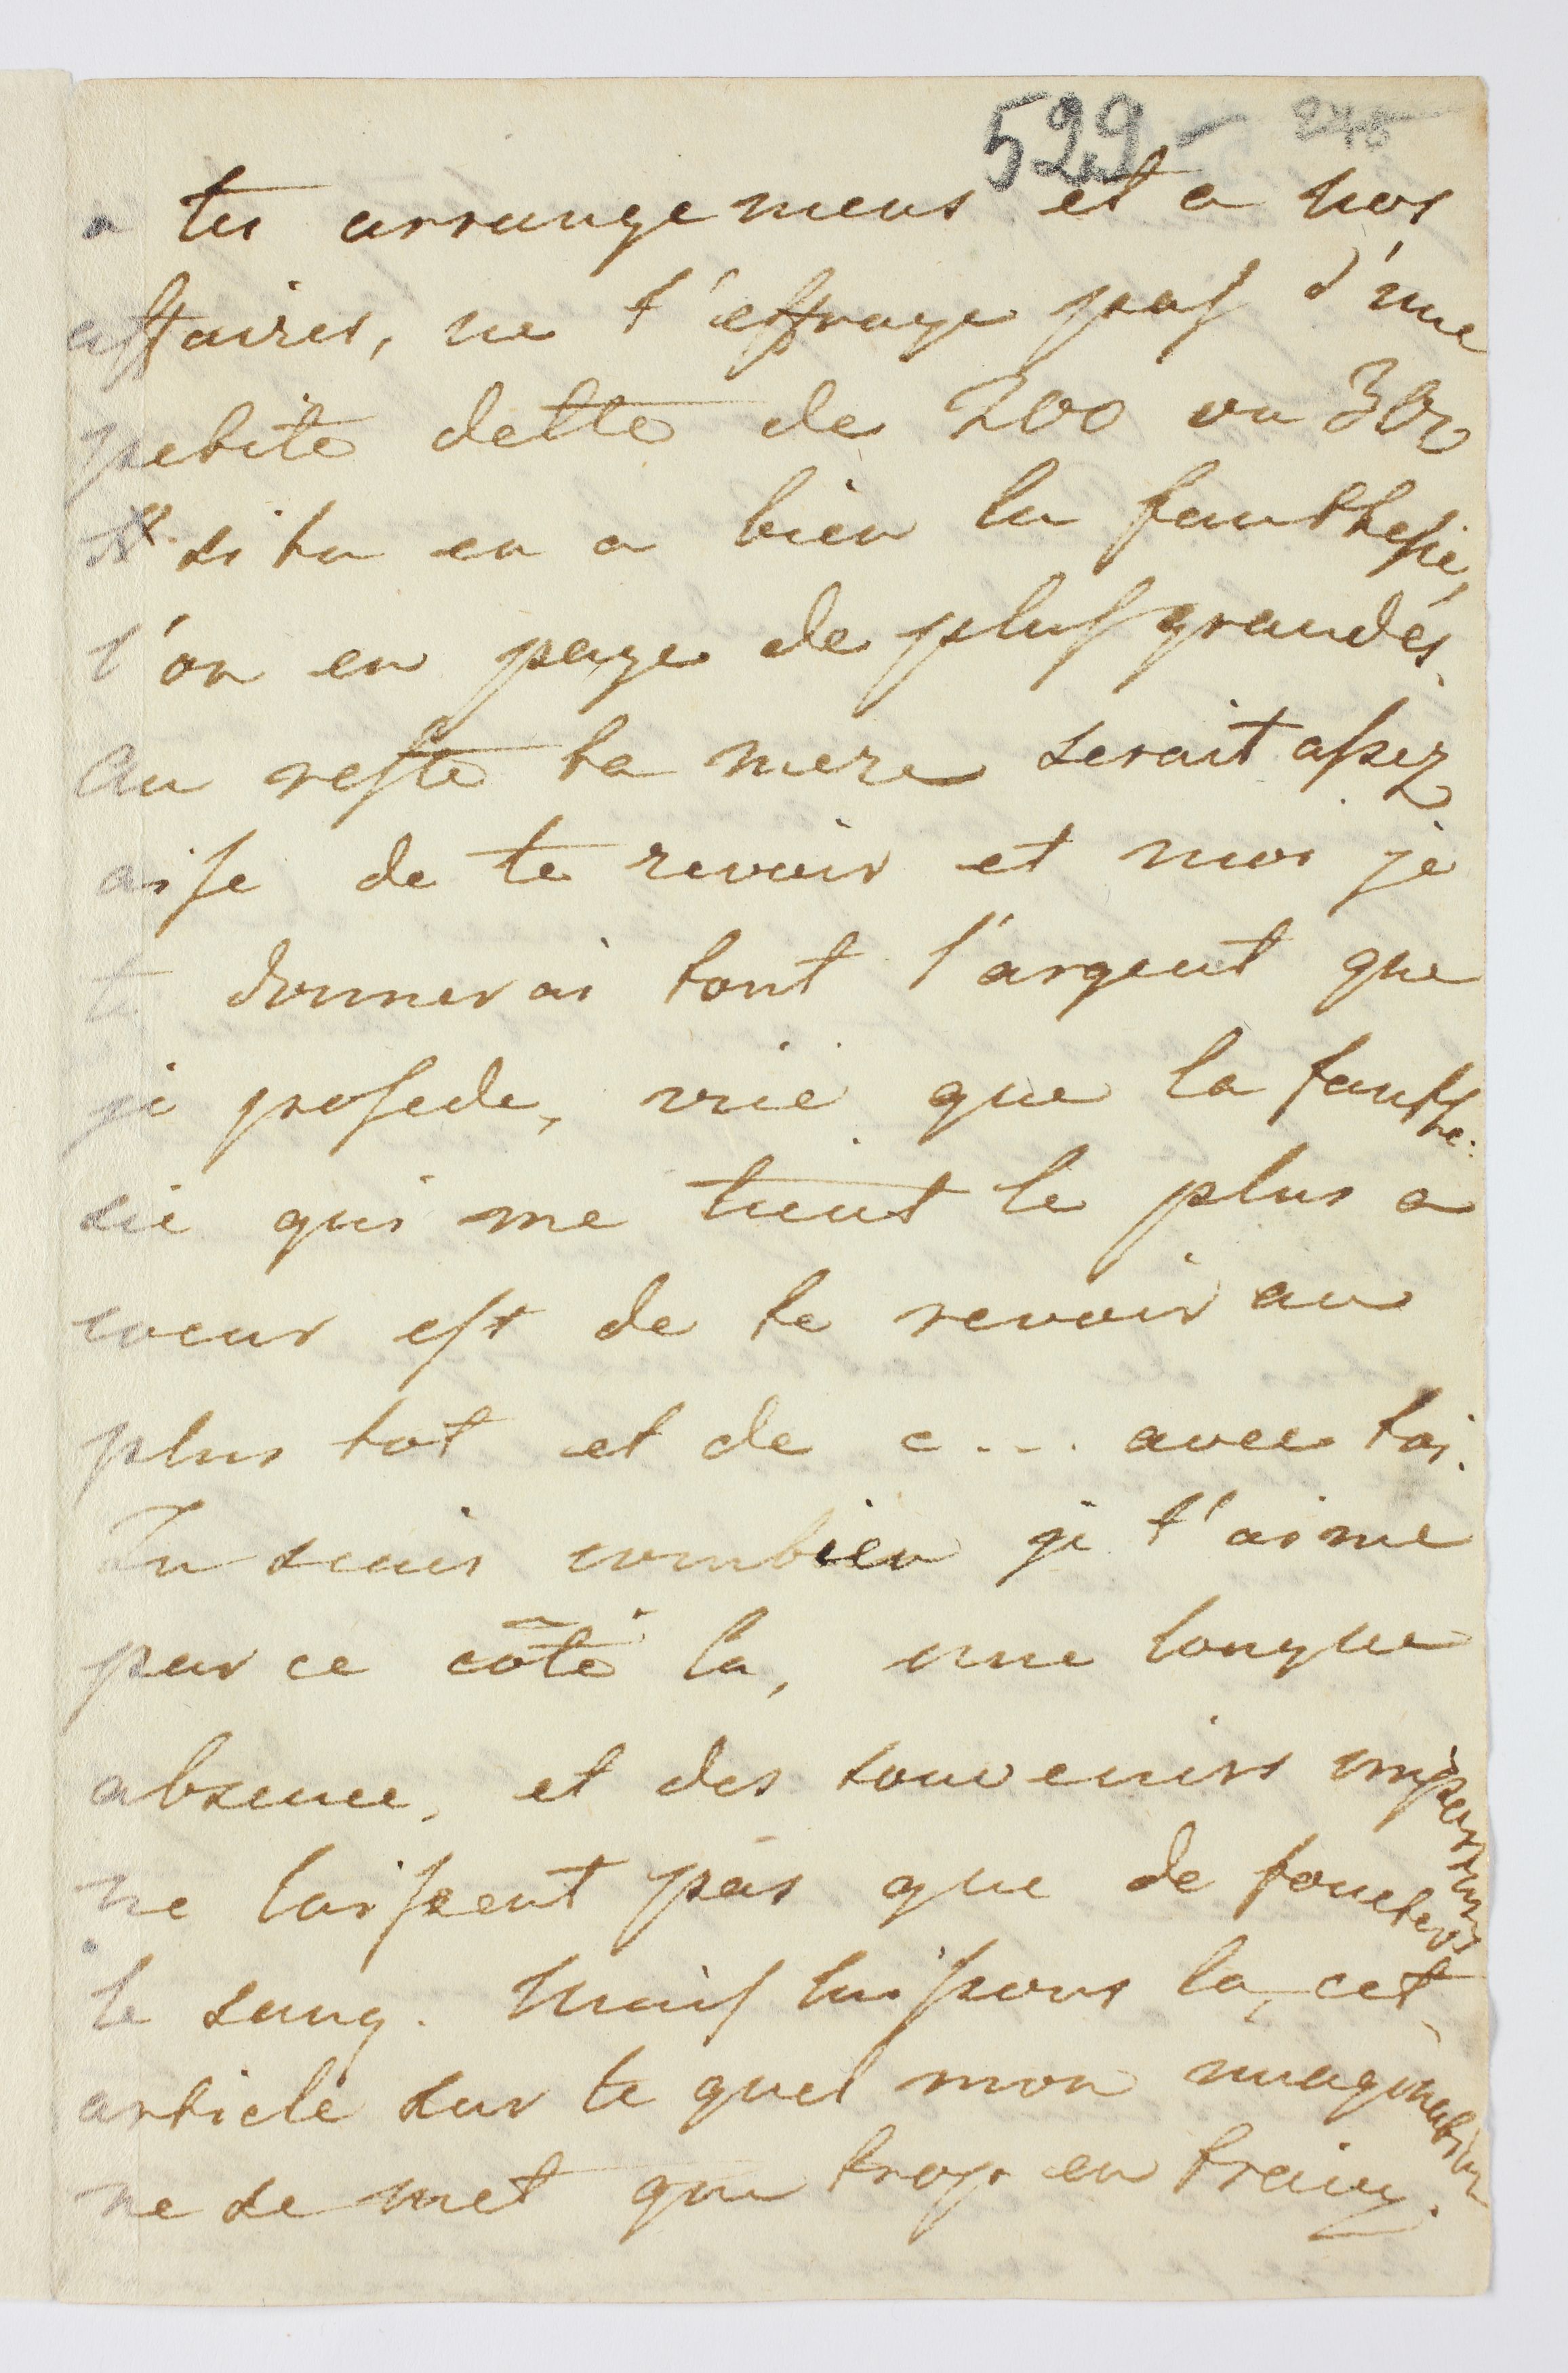 529 - 248
a tes arrangemens et a nos
affaires, ne t'effraye pas d'une
petite dette de 200 ou 300
# si tu en a bien la fanthesie,
l'on en paye de plus grandes.
Au reste ta mere serait assez
aise de te revoir et moi je
te donnerai tout l'argent que
je possede, vrié que la fanthe-
sie qui me tient le plus a
coeur est de te revoir au
plus tot et de c... avec toi.
Tu scais combien je t'aime
par ce côté la, une longue
absence, et des souvenirs importuns
ne laissent pas que de fouetter
le sang. Mais laissons la, cet
article sur le quel mon imagination
ne se met que trop en train.